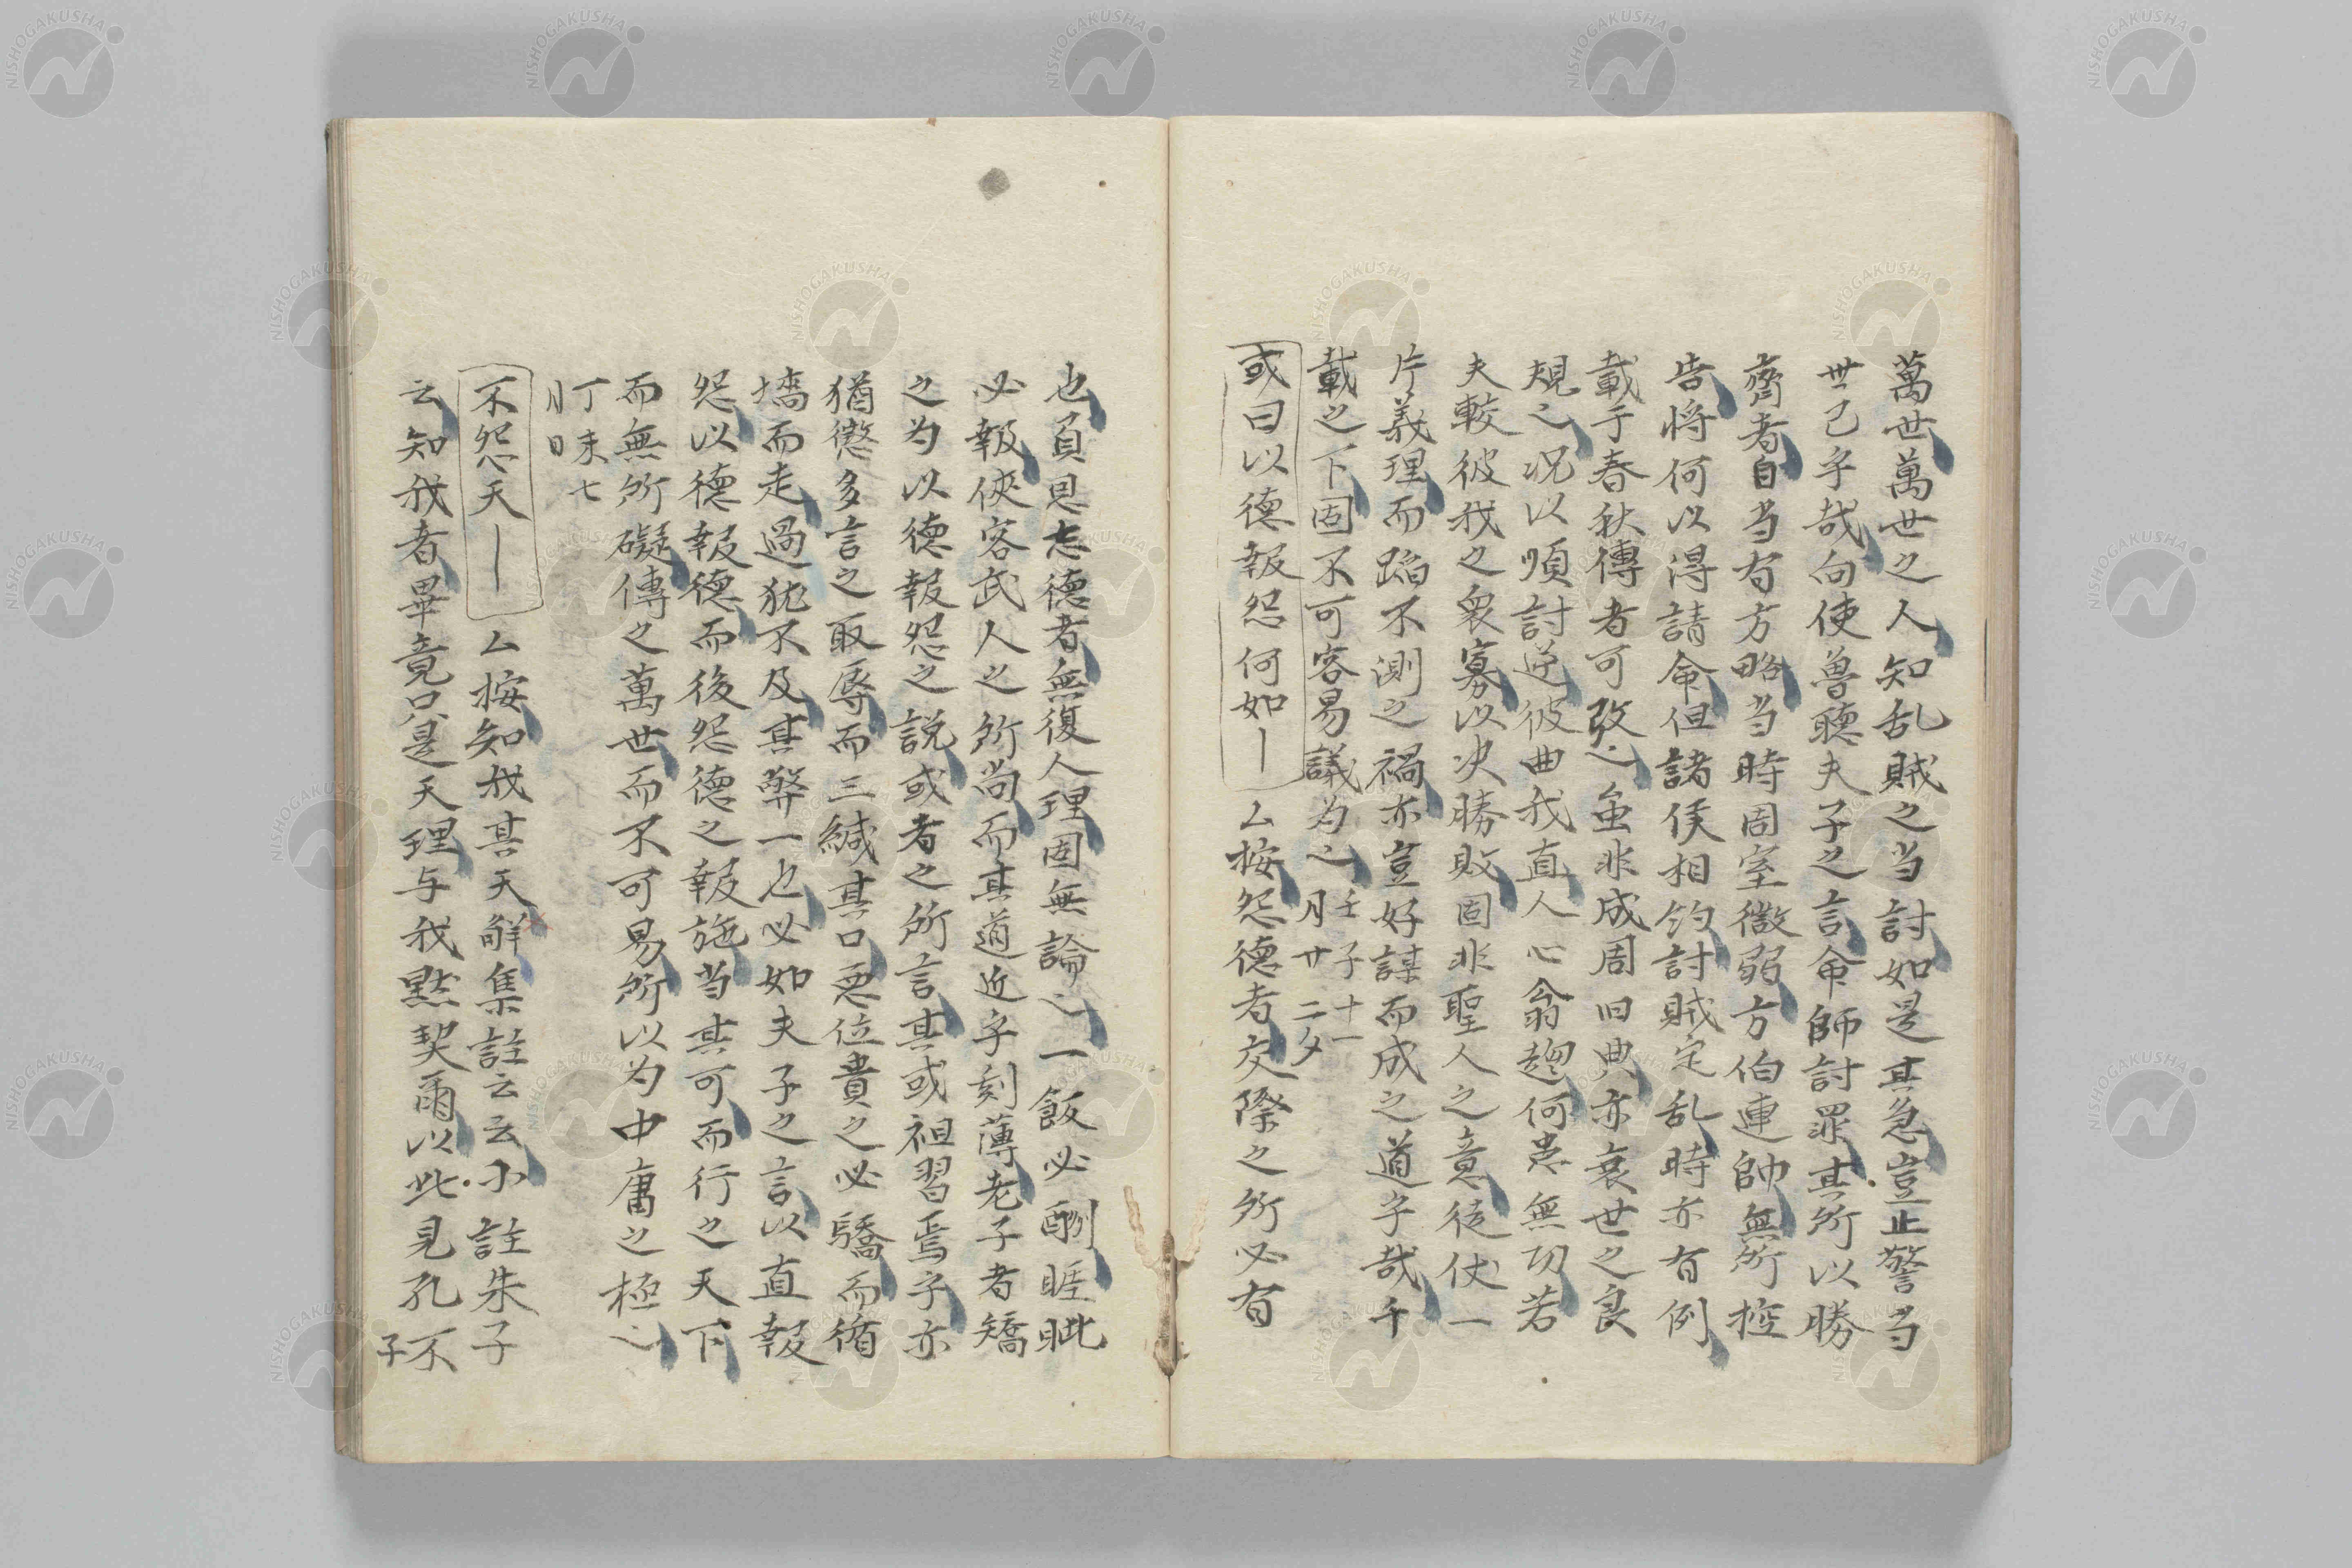 萬世萬世之人知乱賊之当討如是其急豈止警当
世已乎哉向使魯聴夫子之言命師討罪其所以勝
齊者自当有方略当時周室微弱方伯連帥無所控
告将何以得請命但諸侯相約討賊定乱時亦有例
載于春秋傳者可攷之虽非成周旧典亦衰世之良
規之况以順討逆彼曲我直人心翕趨何患無功若
夫較彼我之衆寡以决勝敗固非聖人之意徒仗一
片義理而蹈不測之禍亦豈好謀而成之道乎哉千
載之下固不可容易議为之 壬子十一
月廿二夕
或曰以德報怨何如｜ 厶按怨德者交際之所必有
也負恩忘德者無復人理固無論之一飯必酬睚眦
必報俠客武人之所尚而其道近乎刻薄老子者矯
之为以德報怨之説或者之所言其或祖習焉乎亦
猶懲多言之取辱而三緘其口悪位貴之必驕而循
墻而走過犹不及其弊一也必如夫子之言以直報
怨以德報德而後怨德之報施当其可而行之天下
而無所礙傳之萬世而不可易所以为中庸之極之
丁未七
月日
不怨天｜ 厶按知我其天觧集註云云小註朱子
云知我者畢竟只是天理与我黙契爾以此見孔
子不
NISHOGAKUSHA